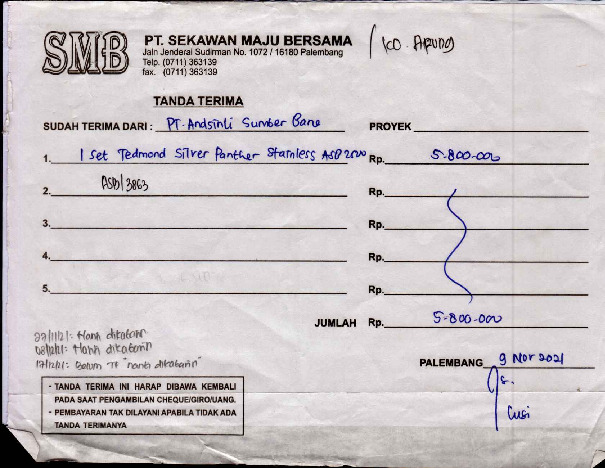 SMB
PT. SEKAWAN MAJU BERSAMA
Jaln Jenderal Sudirman No. 1072 / 16180 Palembang
Telp. (0711) 363139
fax. (0711) 363139
TANDA TERIMA
SUDAH TERIMA DARI : PT. Sumber PROYEK
1. 1 Set Tedmond Silver Panther Stainless ASD 2000 Rp. 5.800.000
2. ASD/3863 Rp.
3. Rp.
4. Rp.
5. Rp.
JUMLAH Rp. 5.800.000
22/11/21: Nanti dikabarin
08/12/21: Nanti dikabarin
17/12/21: Belum TF "nanti dikabarin"
PALEMBANG 9 Nov 2021
- TANDA TERIMA INI HARAP DIBAWA KEMBALI
PADA SAAT PENGAMBILAN CHEQUE/GIRO/UANG.
- PEMBAYARAN TAK DILAYANI APABILA TIDAK ADA
TANDA TERIMANYA